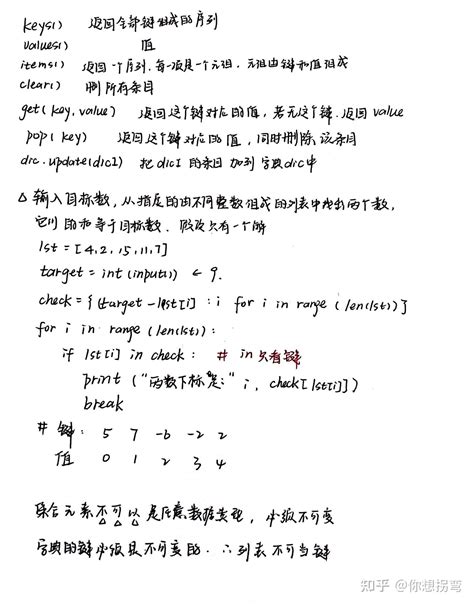 keys() 返回全部键组成的序列
values() 值
items() 返回一个序列.每一项是一个元组,元组由键和值组成
clear() 删所有条目
get(key,value) 返回这个键对应的值,若无这个键.返回value
pop(key) 返回这个键对应的值,同时删除该条目
dic.update(dic1) 把dic1的条目加到字典dic中
△ 输入目标数,从指定的由不同整数组成的列表中找出两个数,
它们的和等于目标数.假设只有一个解
lst=[4,2,15,11,7]
target=int(input()) ← 9.
check={(target-lst[i]:i for i in range(len(lst))}
for i in range(len(lst)):
if lst[i] in check: # in 只看键
print("两数下标是:" i, check[lst[i]])
break
# 键: 5 7 -6 -2 2
值 0 1 2 3 4
集合元素不可以是任意数据类型,必须不可变
字典的键必须是不可变的.∴列表不可当键
知乎 @你想拐弯